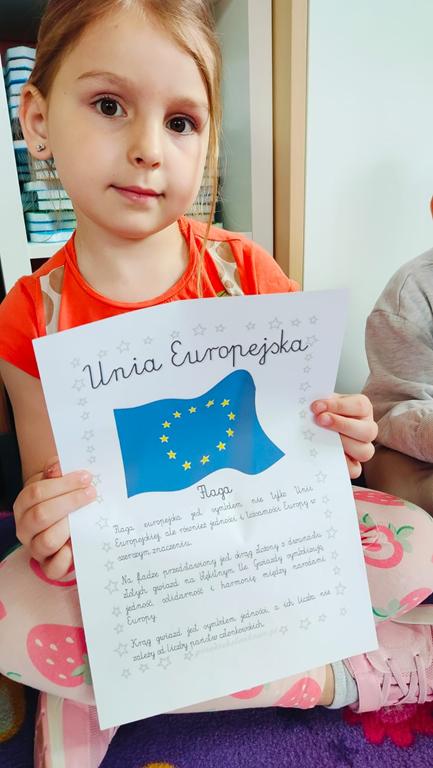 Unia Europejska
Flaga
Flaga europejska jest symbolem nie tylko Unii
Europejskiej, ale również jedności i tożsamości Europy w
szerszym znaczeniu.
Na fladze przedstawiony jest okrąg złożony z dwunastu
złotych gwiazd na błękitnym tle. Gwiazdy symbolizują
jedność, solidarność i harmonię między narodami
Europy.
Krąg gwiazd jest symbolem jedności, a ich liczba nie
zależy od liczby państw członkowskich.